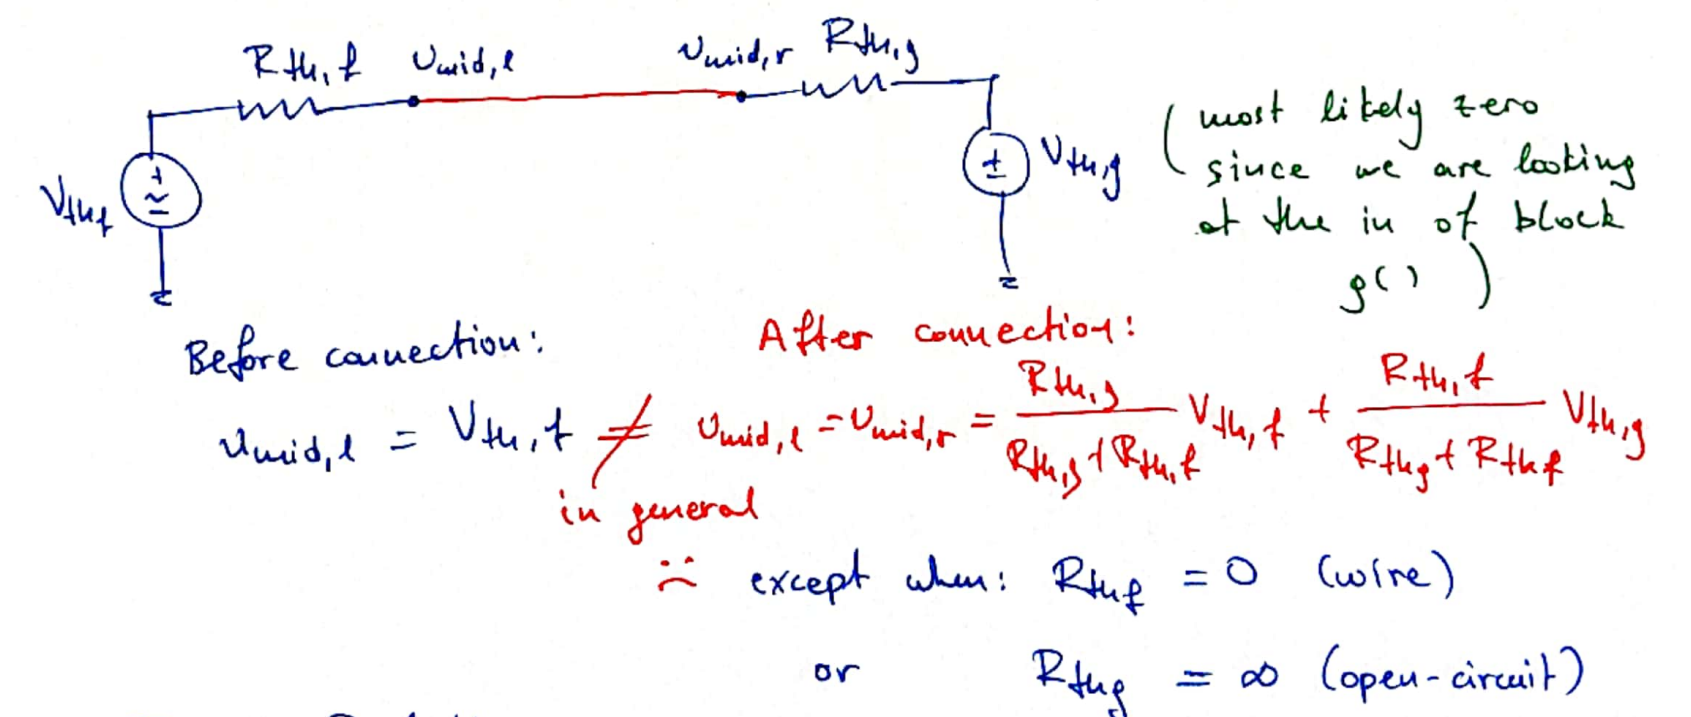 Rth,f Umid,l Umid,r Rth,g
Vthf + ~ - + - Vth,g
(most likely zero
since we are looking
at the in of block
g() )
Before connection: After connection:
Umid,l = Vth,f ≠ Umid,l = Umid,r = Rth,g / (Rth,g + Rth,f) Vth,f + Rth,f / (Rthg + Rthf) Vth,g
in general
:( except when: Rthf = 0 (wire)
or Rthg = ∞ (open-circuit)